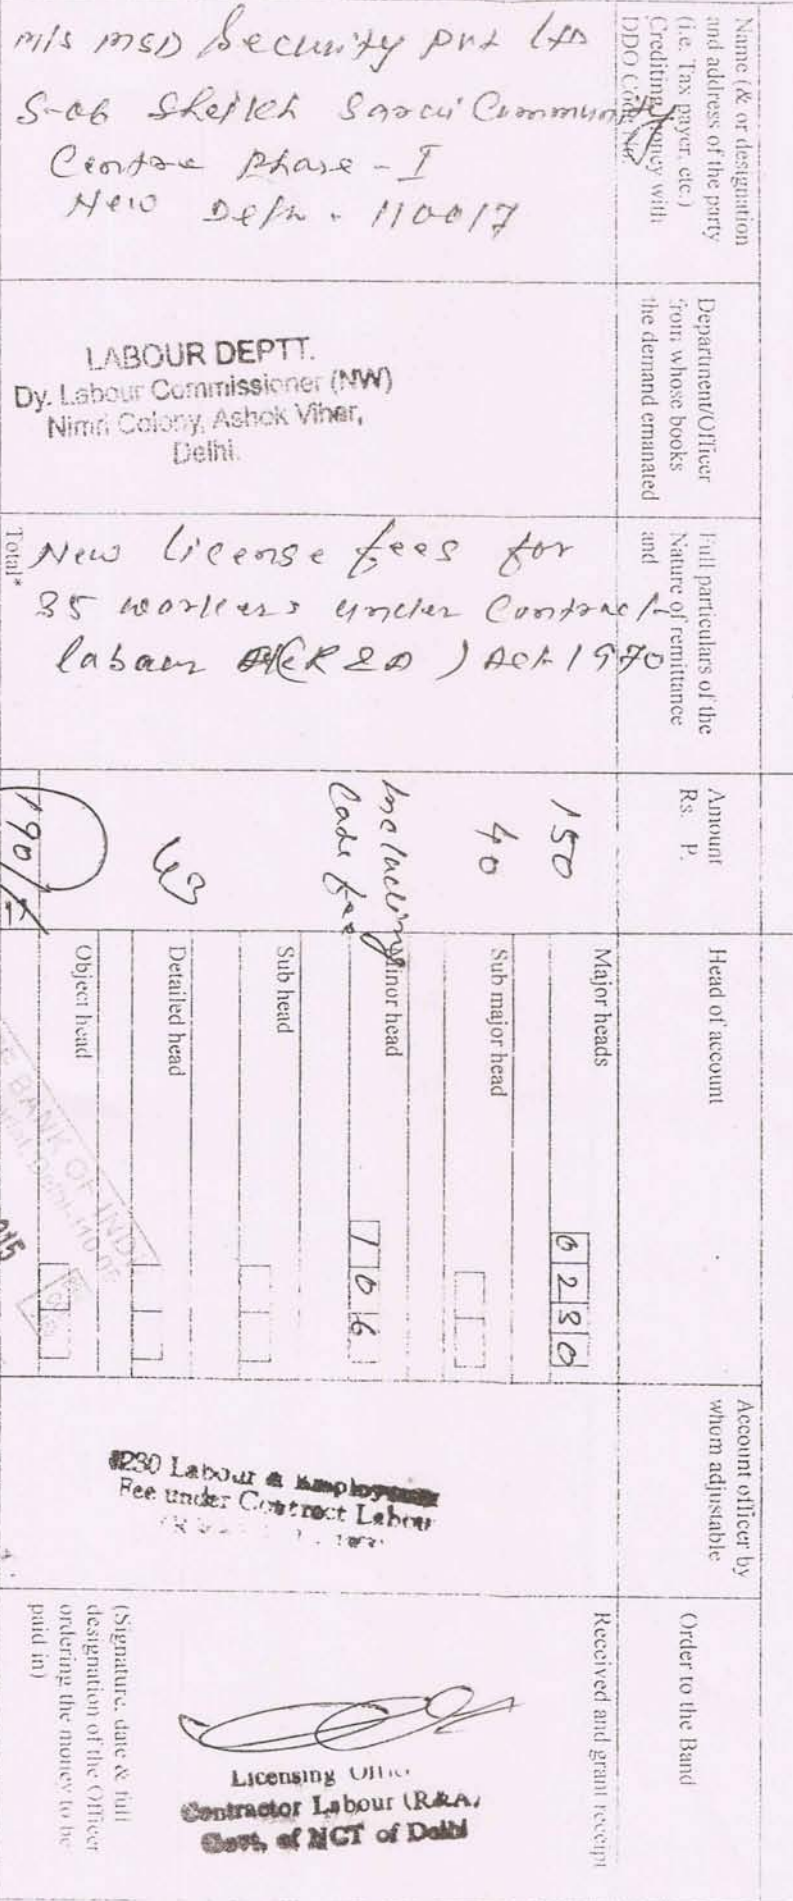 Name (& or designation
and address of the party
(i.e. Tax payer, etc.)
Crediting money with
DDO Code No.
M/s MSD Security Pvt Ltd
S-06 Sheikh Sarai Community
Centre Phase - I
New Delhi - 110017
Department/Officer
from whose books
the demand emanated
LABOUR DEPTT.
Dy. Labour Commissioner (NW)
Nimri Colony, Ashok Vihar,
Delhi.
Full particulars of the
Nature of remittance
and
New License fees for
35 workers under Contract
labour (R&A) Act 1970
Total*
Amount
Rs. P.
150
40
including
Code fee
190/-
Head of account
Major heads
0230
Sub major head
Minor head
106
Sub head
Detailed head
Object head
BANK OF INDIA
Account officer by
whom adjustable
0230 Labour & Employment
Fee under Contract Labour
Order to the Band
Received and grant receipt
Licensing
Contractor Labour (R&A)
Govt. of NCT of Delhi
(Signature, date & full
designation of the Officer
ordering the money to be
paid in)